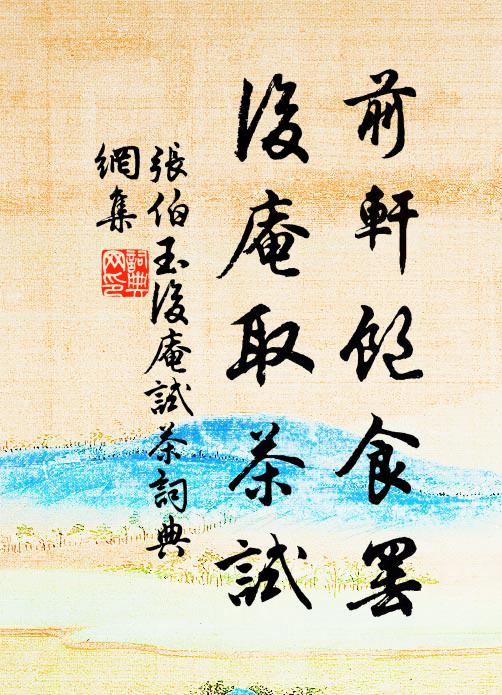 前軒飽食罷
後庵取茶試
張伯玉後庵試茶詞典
網集
詞典
网印